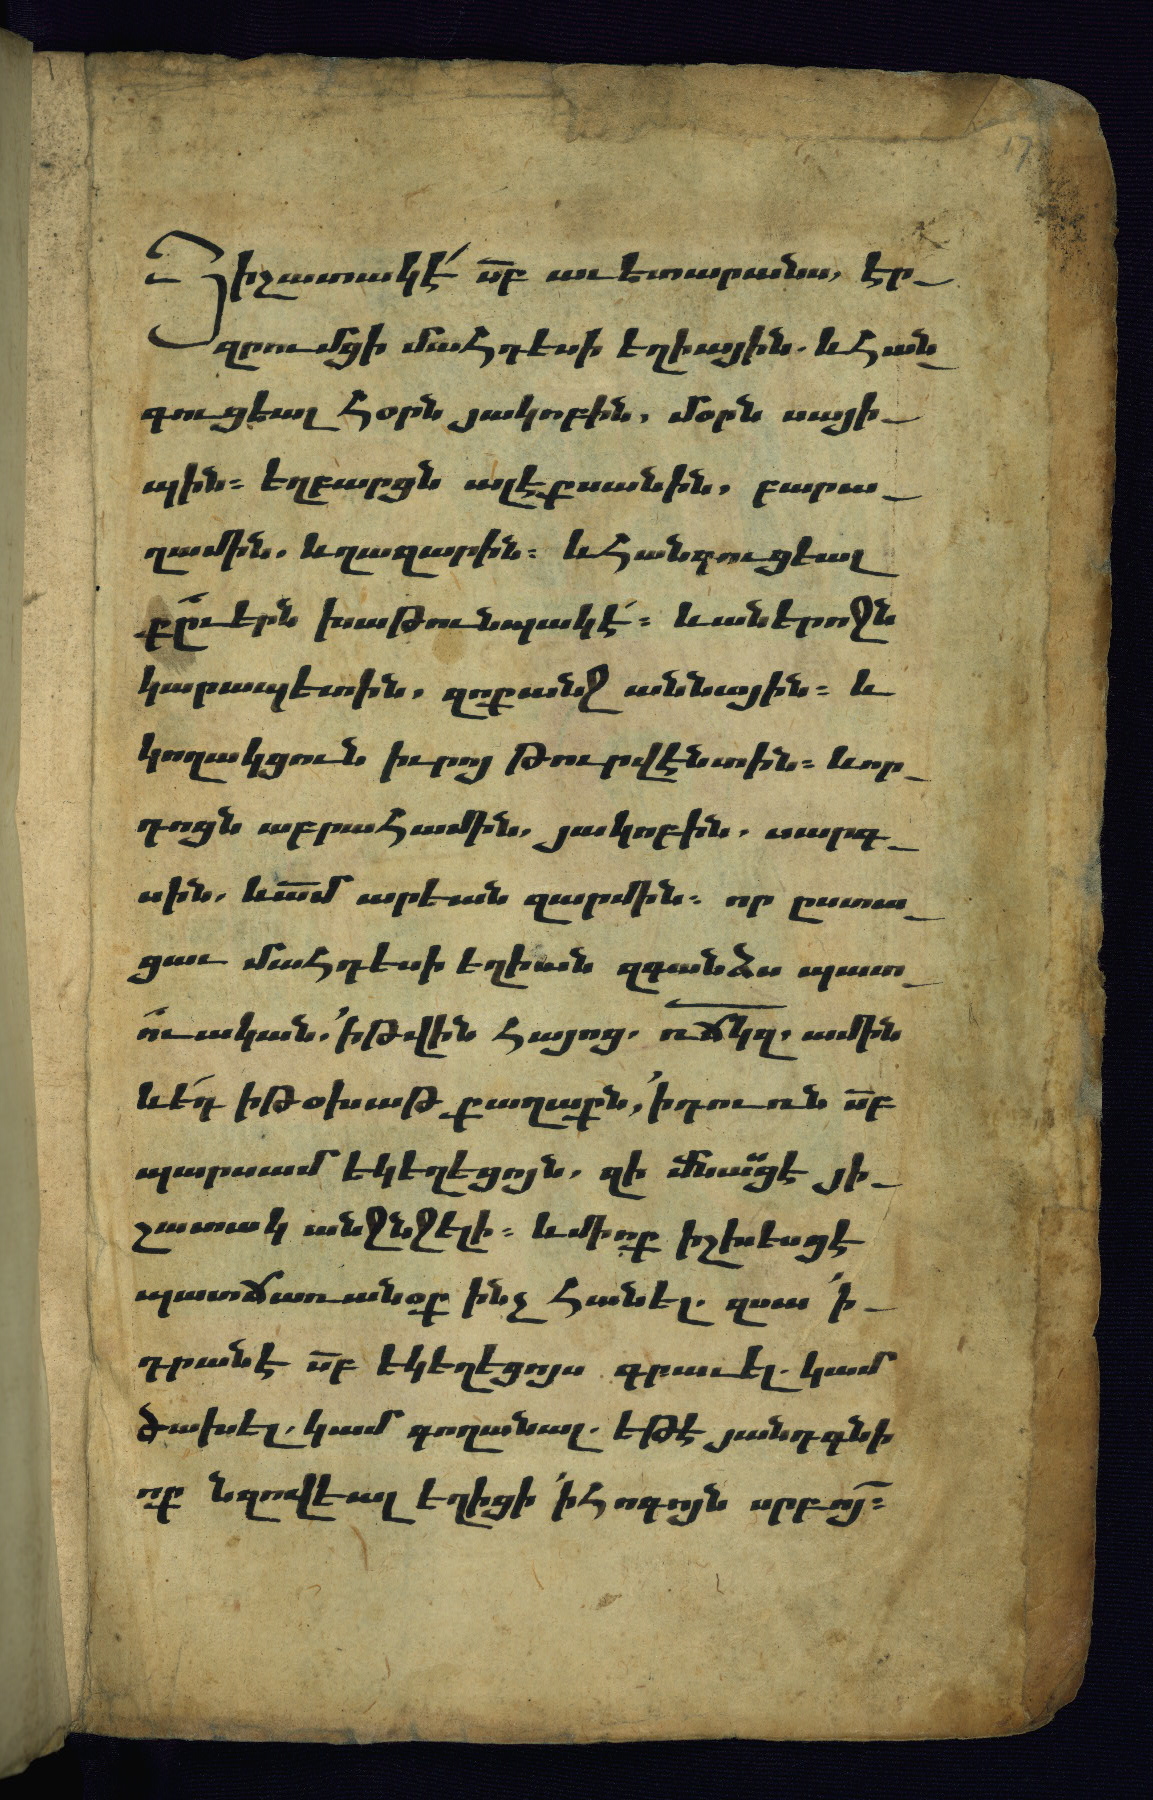 Յիշատակէ́ ս̅բ աւետարանս, էր_
զրումցի մահդէսի եղիային. և հան_
գուցեալ հօրն յակոբին, մօրն սայի_
պին։ եղբարցն ալէքսանին, բարա_
ղամին. և ղազարին։ և հանգուցեալ
քըւերն խաթունպակէ́։ և աներոջն
կարապետին, զոքանջ աննային։ և
կողակցուն իւրոյ թուրվէնտին։ և որ_
դոցն աբրահամին, յակոբին. սարգ_
սին. և ա̅մ արեան զարմին։ որ ըստա_
ցաւ մահդէսի եղիան զգանձս պատ_
ուական. ՚ի թվին հայոց. ռ̅ճ̅կ̅զ̅. ամին
և է́դ ի թօխաթ քաղաքն, ՚ի դուռն ս̅բ
պարսամ եկեղեցոյն. զի մնասցէ յի_
շատակ անջնջելի։ և մի ոք իշխեսցէ
պատճառանօք ինչ հանել. զսա ՚ի_
դրանէ ս̅բ եկեղեցոյս գրաւել. կամ
ծախել. կամ գողանալ. եթէ յանդգնի
ոք նզովեալ եղիցի ՚ի հոգոյն սրբոյ։